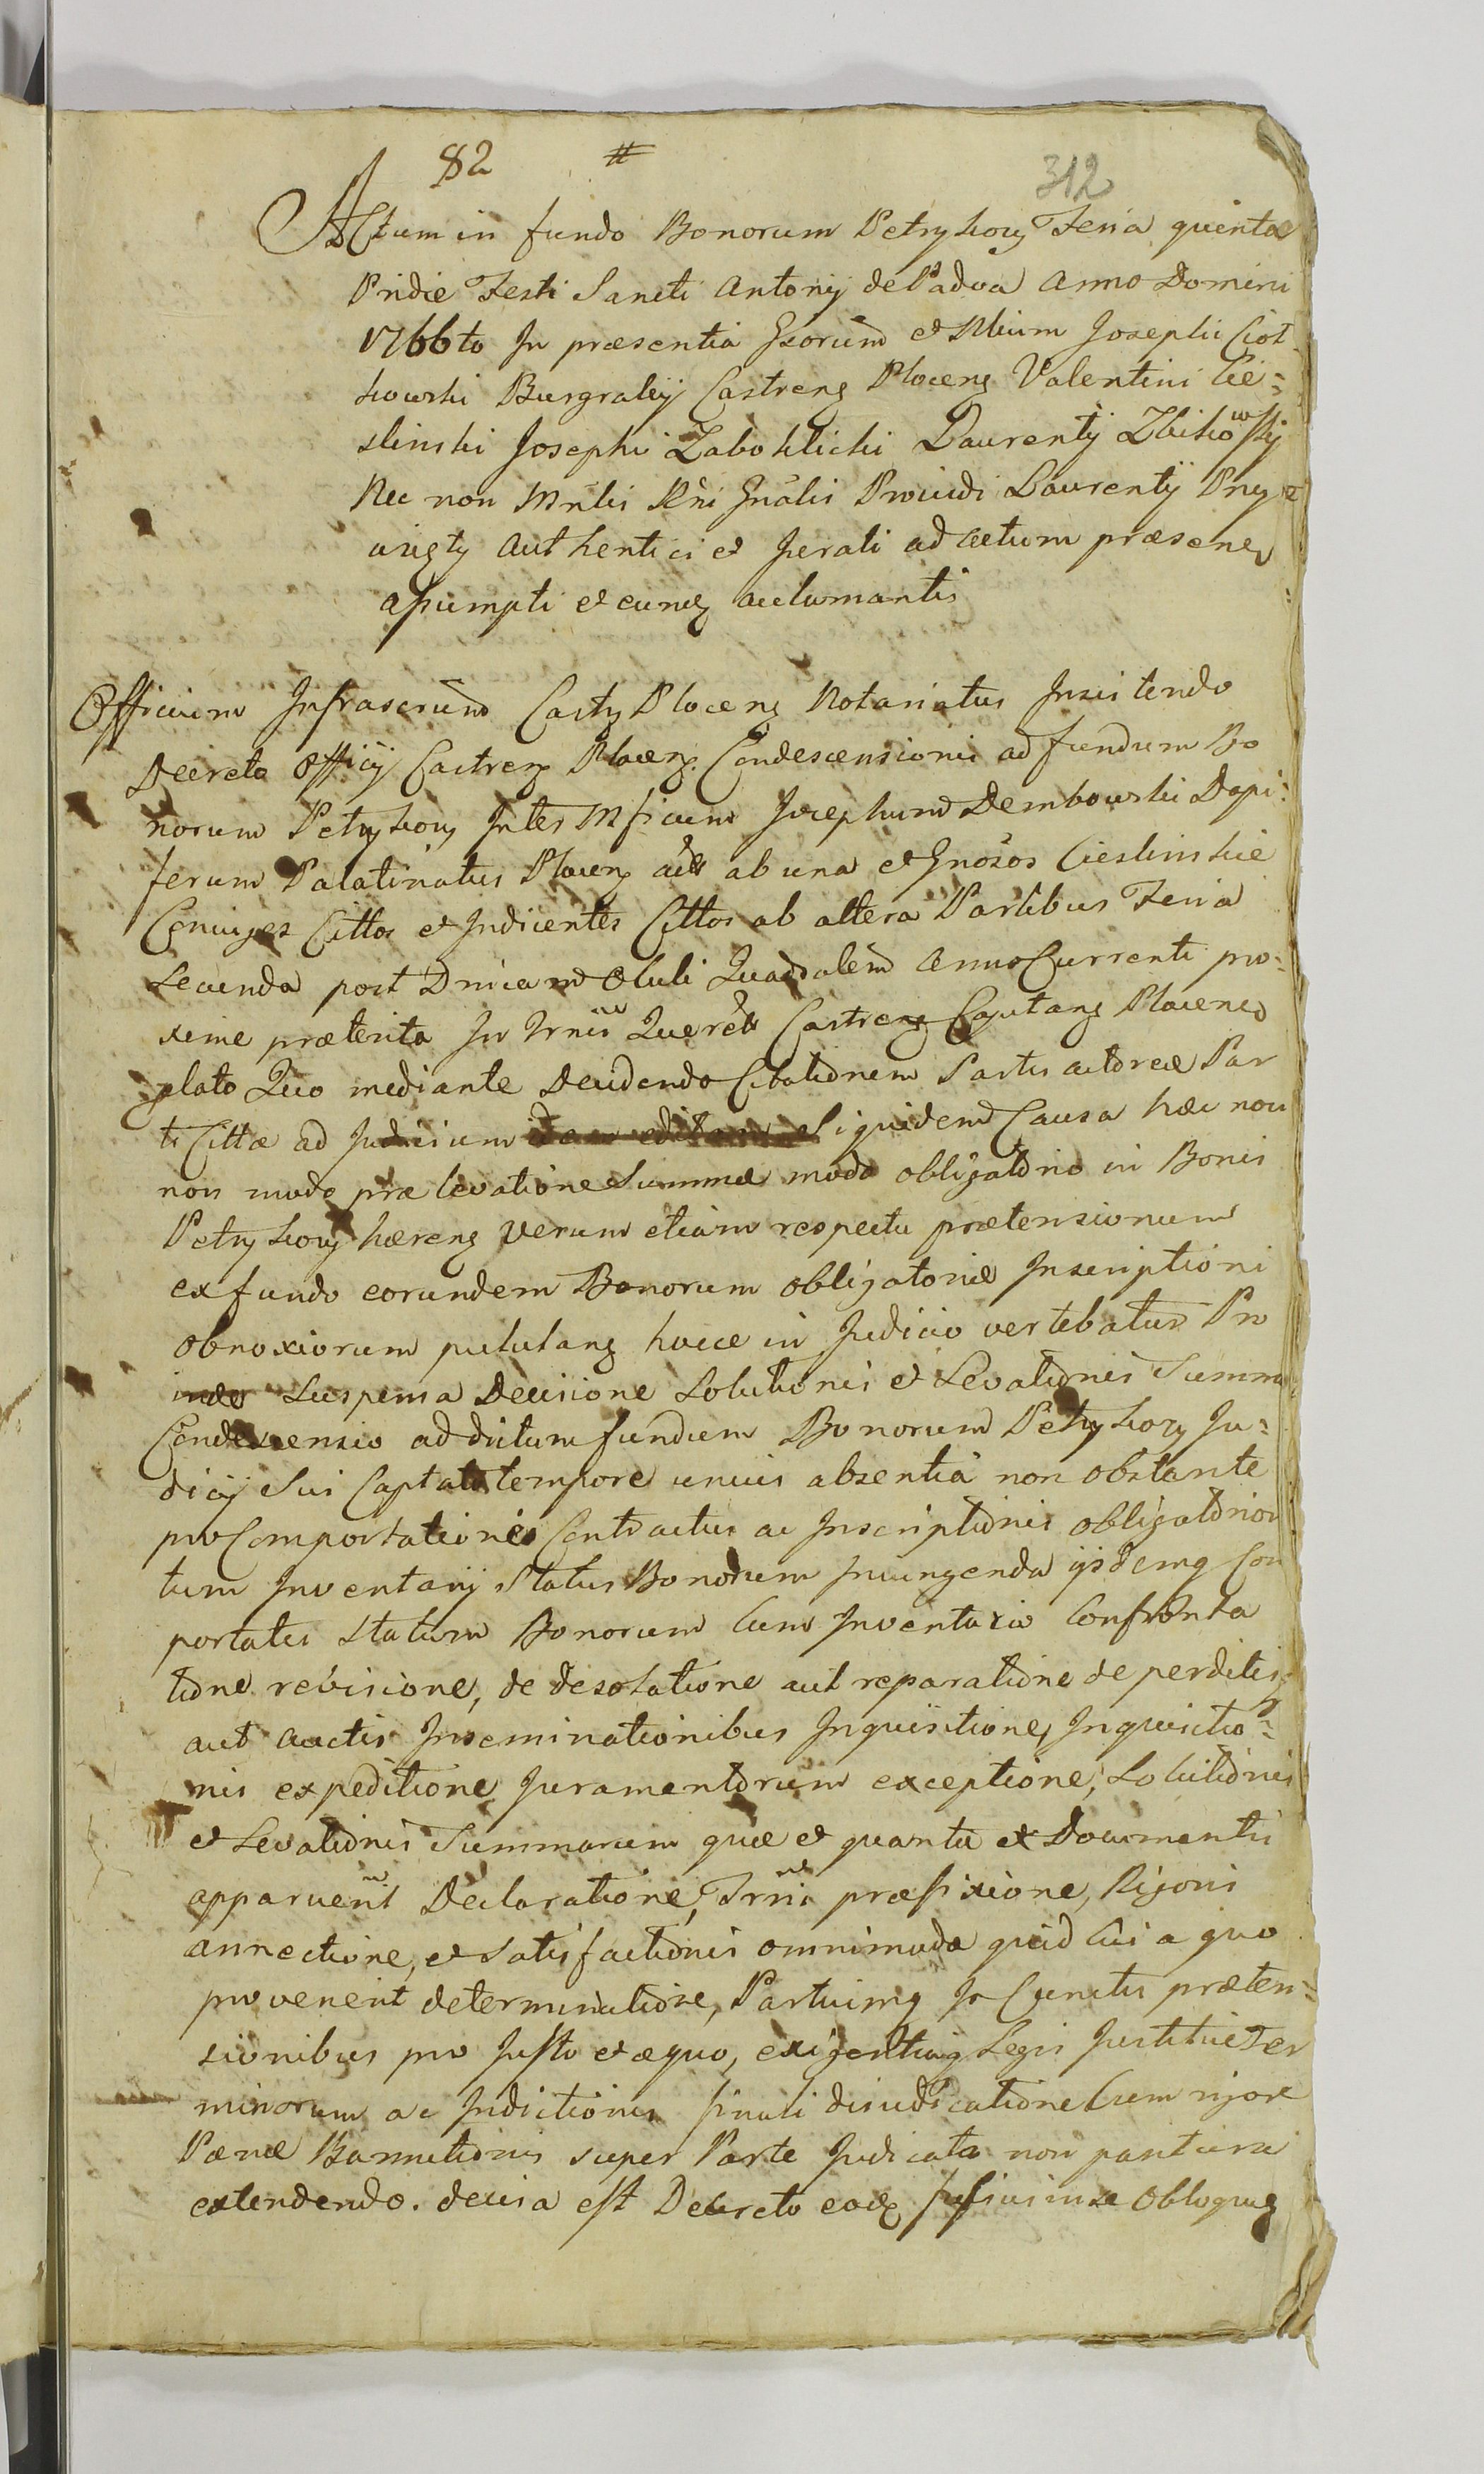 82 #
312
Actum in fundo Bonorum Petrykozy Feria quinta
Pridie Festi Sancti Antonij de Padua Anno Domini
1766to In præsentia Gsorum et Nbium Josephi Ciot
kowski Burgrabij Castrens Plocens Valentini Cie=
slinski Josephi Zaboklicki Laurentij Zbikowskij
Nec non Mnlis Rni Gnalis Providi Laurentij
Authentici et Jurati ad actum præsenem
assumpti et eunq aclamantis
Officium Infrascrum Castr Plocens Notariatus Insistendo
Decreto Officij Castrens Plocens Condescensionis ad fundum Bo
norum Petrykozy Inter Mficum Josephum Dembowski Dapi=
ferum Palatinatus Plocens ab una et Gnosos Cieslinskie
Conjuges Cittos et Indicentes Cittos ab altera Partibus Feria
Secunda post Dnicam Oculi Quadalem Anno Currenti pro=
xime præterita In Trnis Querel Castrens Capitans Plocens
lato Quo mediante Decidendo Citationem Partis actoreæ Par
ti Cittæ ad Judicium Siquidem Causa hæc non
non modo præ levatione Summæ modo obligatorio in Bonis
Petrykozy hærens Verum etiam respectu prætensionum
ex fundo eorundem Bonorum obligatoriæ Inscriptioni
obnoxiorum pululans hocce in Judicio vertebatur Pro
inde Suspensa Decisione Solutionis et Levationis Summæ
Condescensio ad dictum fundum Bonorum Petrykozy Ju=
dicij Sui Captato tempore unius absentia non obstante
pro Comportationis Contractus ac Inscriptionis obligatorior
tum Inventarij Status Bonorum Injungenda ijsdemq Com
portatis Statum Bonorum Cum Inventario Confronta
tione revisione, de desolatione aut reparatione de perditis
aut auctis Inseminationibus Inquisitione, Inquisitio=
nis expeditione Juramentorum exceptione, Solutionis
et Levationis Summarum quæ et quantæ ex Documentis
apparuerint Declaratione, Trni præfixione, Rigoris
annectione, et Satisfactionis omnimodæ quid Cui a quo
provenerit determinatione, Partiumq In Cunctis præten=
sionibus pro Justo et æquo, exigentiaq Legis Justitiæ Ter
minorum ac Indictionis finali disjudicatione Cum rigore
Pænæ Bannitionis super Parte Judicata non paritura
extendendo. decisa est Decreto eodq fusius in se obloquens